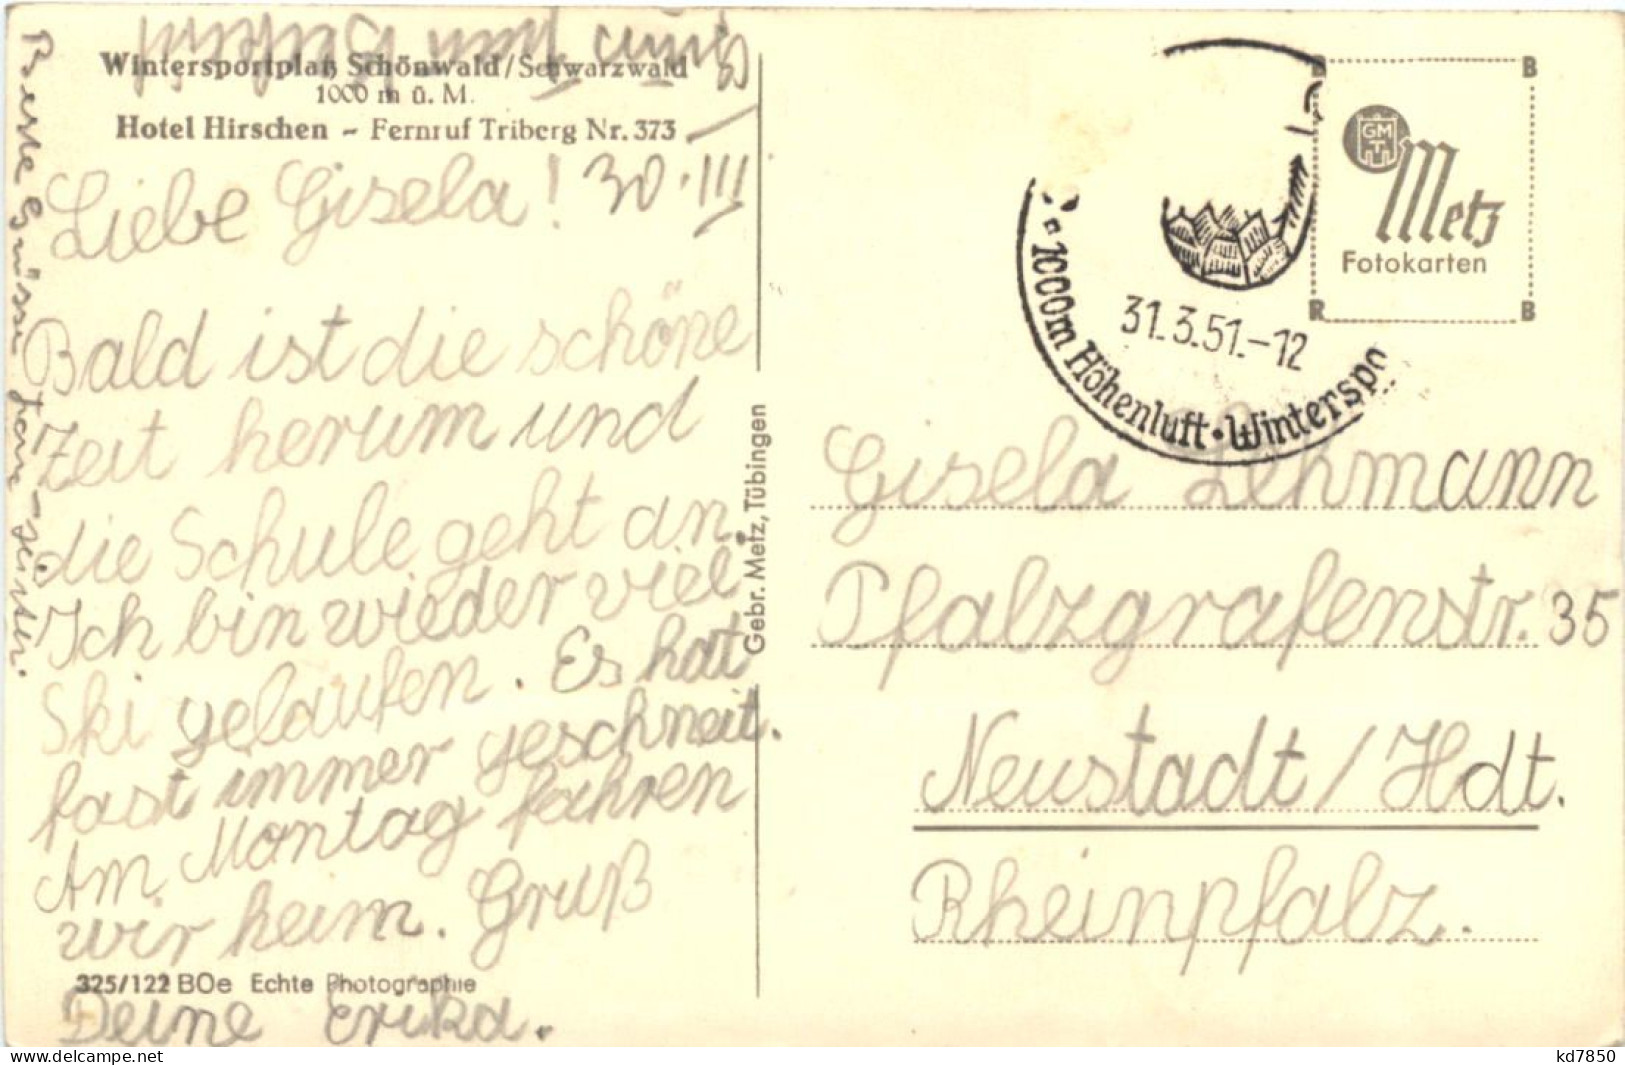 Wintersportplatz Schönwald/Schwarzwald
1000 m ü. M.
Hotel Hirschen - Fernruf Triberg Nr. 373
30.III
Liebe Gisela!
Bald ist die schöne
Zeit herum und
die Schule geht an.
Ich bin wieder viel
Ski gelaufen. Es hat
fast immer geschneit.
Am Montag fahren
wir heim. Gruß
325/122 BOe Echte Photographie
Deine Erika.
Beste Grüsse
Gebr. Metz, Tübingen
31.3.51.-12
1000m Höhenluft • Winterspo
B B
GMT
Metz
Fotokarten
R B
Gisela Lehmann
Pfalzgrafenstr. 35
Neustadt/Hdt.
Rheinpfalz.
www.delcampe.net
kd7850